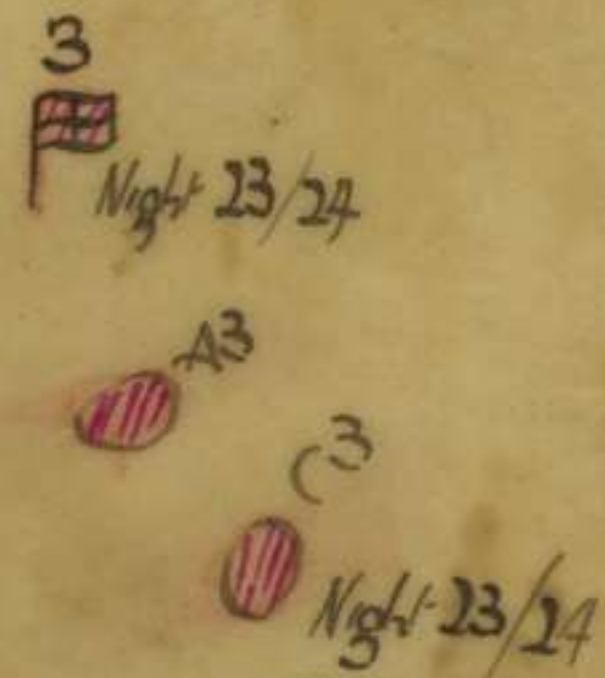 3
Night 23/24
A3
C3
Night 23/24